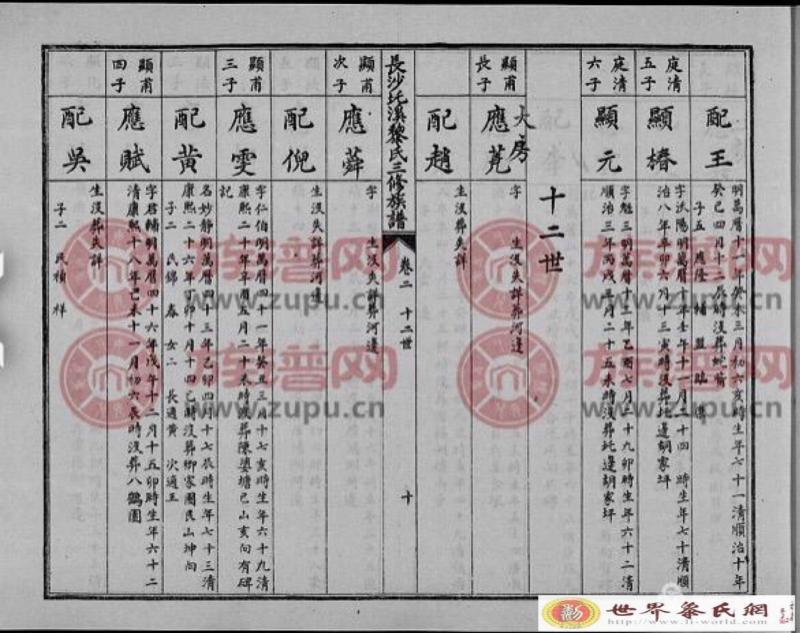 配王
明萬曆十一年癸未三月初六亥時生年七十一清順治十年
癸巳四月十二辰時沒葬
子五 應隆 輔
庭清
五子
顯椿
治八年辛卯六月十三寅時沒葬圫邊胡家坪
庭清
六子
顯元
字魁三明萬曆十二年乙酉七月二十九卯時生年六十二清
順治三年丙戌三月二十五未時沒葬圫邊胡家坪
十二世
大房
顯甫
長子
應莞
字 生沒失詳葬河邊
配趙
生沒葬失詳
長沙圫溪黎氏三修族譜
卷二 十二世
十
顯甫
次子
應蕣
字 生沒失詳葬河邊
配倪
生沒失詳葬河邊
顯甫
三子
應雯
字仁伯明萬曆四十一年癸丑三月十七亥時生年六十九清
康熙二十年辛酉五月二十未時沒葬陳婆塘巳山亥向有碑
記
配黃
名妙靜明萬曆四十三年乙卯四月十七辰時生年七十三清
康熙二十六年丁卯十月十四巳時沒葬鄉家園艮山坤向
子二 民錦 春 女二 長適黃 次適王
顯甫
四子
應賦
字君輔明萬曆四十六年戊午十二月十五卯時生年六十二
清康熙十八年己未十一月初六辰時沒葬八鶴園
配吳
生沒葬失詳
子二 民楨 祥
族譜网
www.zupu.cn
族譜网
www.zupu.cn
族譜网
www.zupu.cn
族譜网
www.zupu.cn
世界黎氏網
http://www.li-world.com